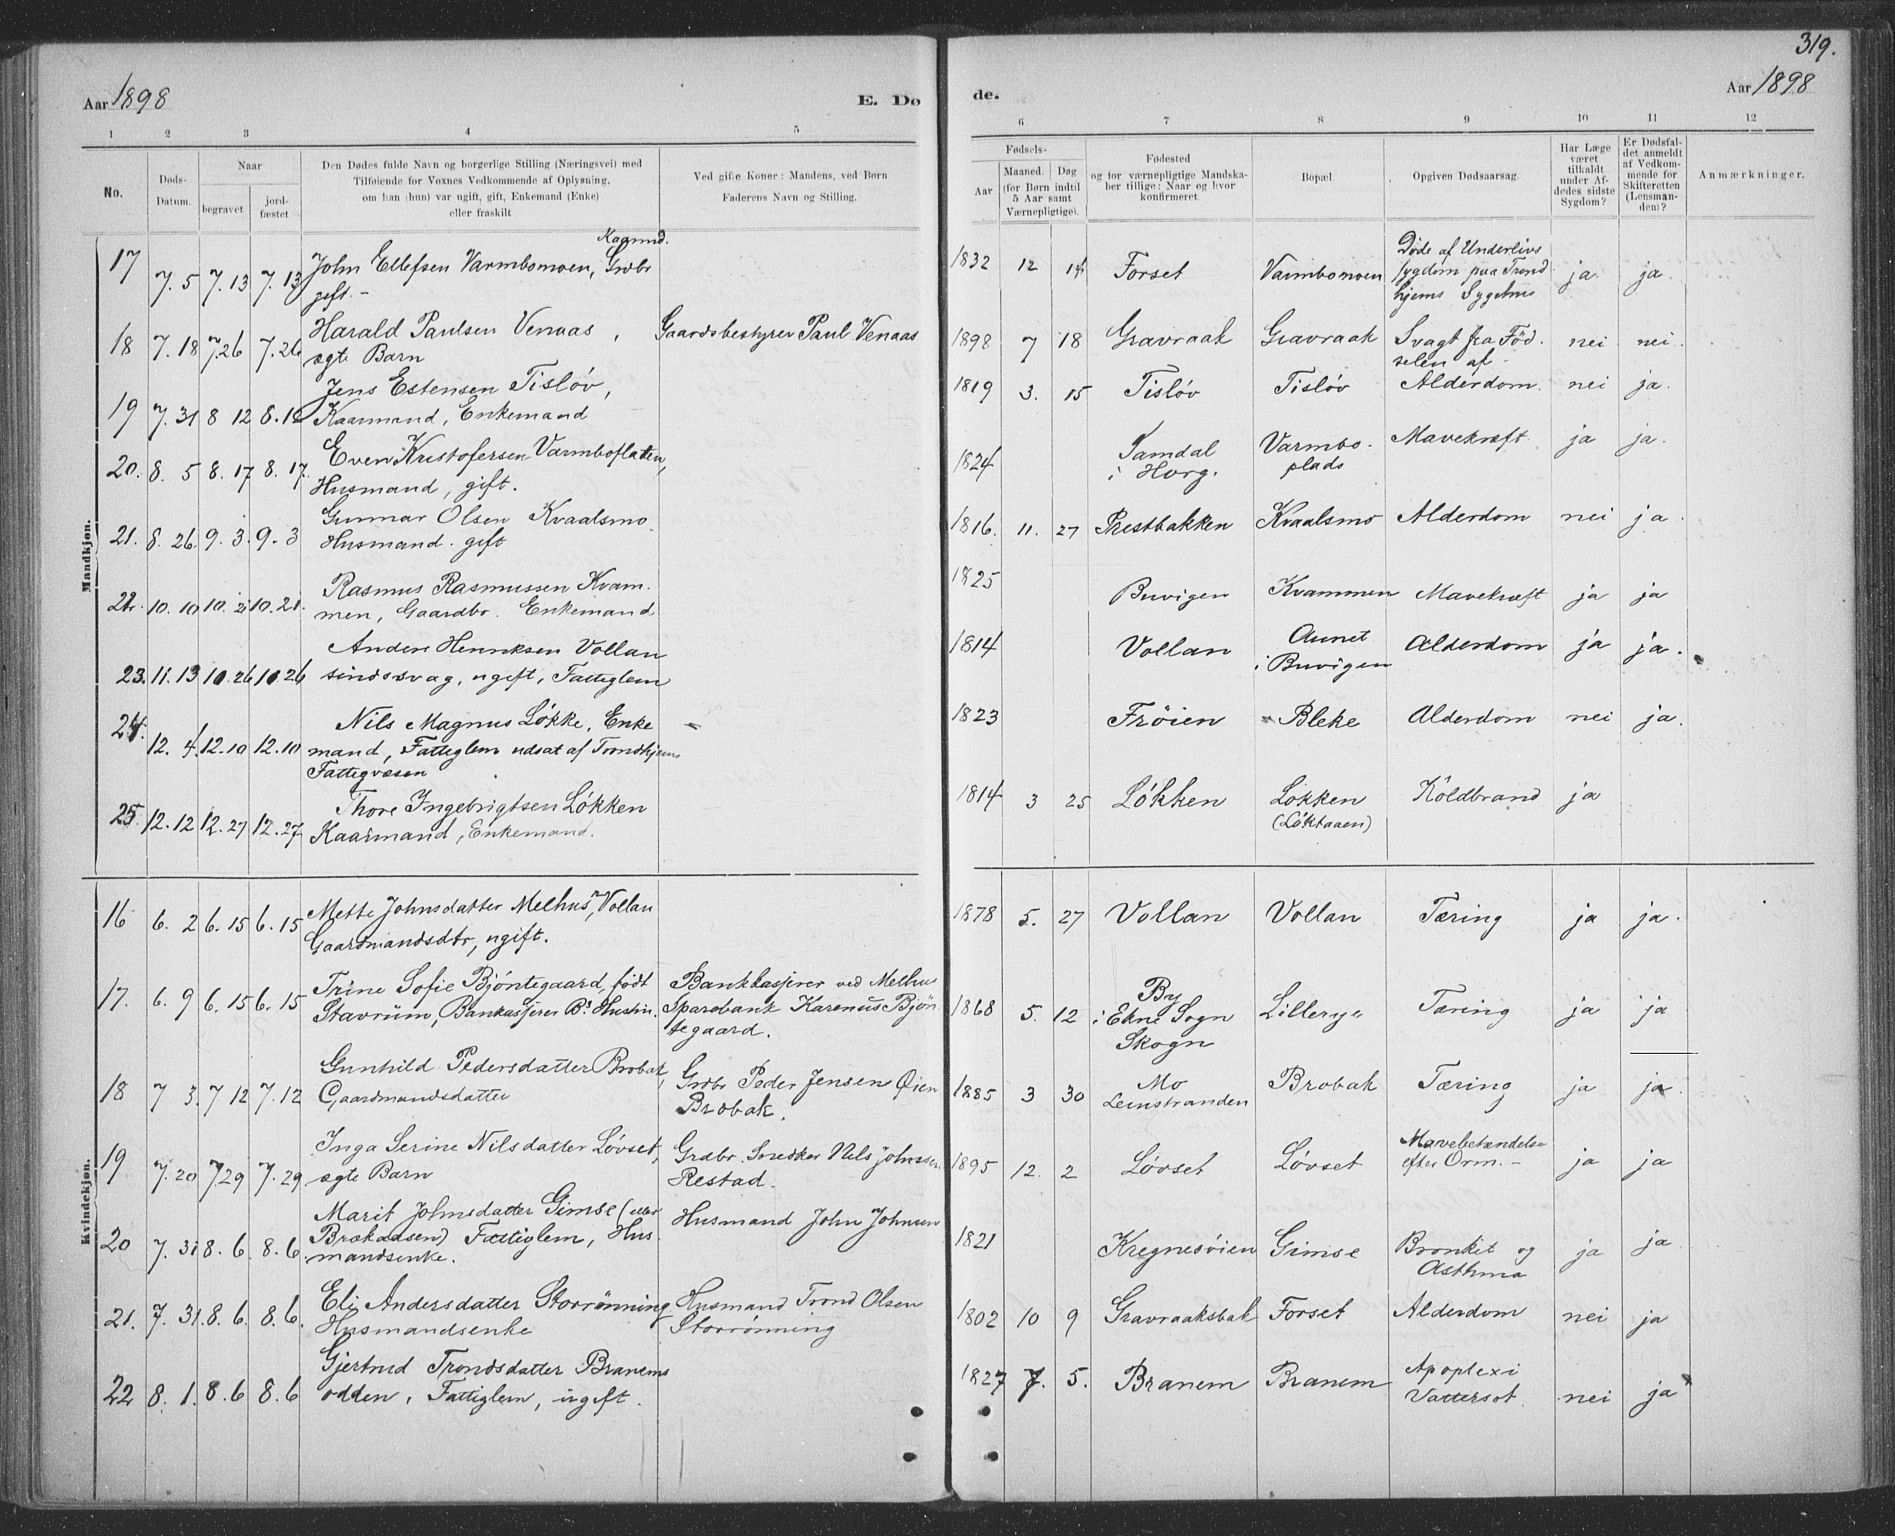 319.
Aar 1898
E. Dø
de.
Aar 1898
1 2 3 4 5 6 7 8 9 10 11 12
No.
Døds-
Datum.
Naar
begravet
jord-
fæstet
Den Dødes fulde Navn og borgerlige Stilling (Næringsvei) med
Tilføiende for Voxnes Vedkommende af Oplysning,
om han (hun) var ugift, gift, Enkemand (Enke)
eller fraskilt
Ved gifte Koner: Mandens, ved Børn
Faderens Navn og Stilling.
Fødsels-
Aar
Maaned. Dag
(for Børn indtil
5 Aar samt
Værnepligtige).
Fødested
og for værnepligtige Mandska-
ber tillige: Naar og hvor
konfirmeret
Bopæl
Opgiven Dødsaarsag.
Har Læge
været
tilkaldt
under Af-
dødes sidste
Sygdom?
Er Dødsfal-
det anmeldt
af Vedkom-
mende for
Skifteretten
(Lensman-
den)?
Anmærkninger.
Mandkjøn.
17 7. 5 7. 13 7. 13 John Ellefsen Varmbomoen, Grdbr
gift. -
1832 12 14 Forset Varmbomoen Døde af Underlivs
sygdom paa Trond
hjems Sygehus ja ja
18 7. 18 7.26 7.26 Harald Paulsen Venaas,
ægte Barn
Gaardsbestyrer Paul Venaas
1898 7 18 Gravraak Gravraak Svagt fra Fød.
selen af nei nei
19 7. 31 8 12 8. 12 Jens Estensen Tisløv,
Kaarmand, Enkemand
1819 3. 15 Tisløv Tisløv Alderdom. nei ja.
20. 8. 5 8. 17 8. 17. Even Kristofersen Varmboflaten,
Husmand, gift.
1824 Samdal
i Horg. Varmbo-
plads Mavekræft ja ja.
21. 8. 26. 9. 3. 9. 3 Gunnar Olsen Kvaalsmo
Husmand. gift
1816. 11. 27 Prestbakken Kvaalsmo Alderdom nei ja.
22. 10. 10 10. 21 10. 21. Rasmus Rasmussen Kvam-
men, Gaardbr. Enkemand
1825 Buvigen Kvammen Mavekræft ja ja
23. 11. 13 10. 26 10. 26 Anders Henriksen Vollan
sindssvag, ugift, Fattiglem
1814 Vollan Aunet
i Buvigen Alderdom ja ja.
24. 12. 4. 12. 10 12. 10 Nils Magnus Løkke, Enke
mand, Fattiglem udsat af Trondhjems
Fattigvæsen
1823 Frøien Bleke Alderdom nei ja.
25. 12. 12 12. 27 12. 27 Thore Ingebrigtsen Løkken
Kaarmand, Enkemand.
1814 3 25 Løkken Løkken
(Løktaaen) Koldbrand ja
Kvindekjøn.
16 6. 2 6. 15 6. 15 Mette Johnsdatter Melhus, Vollan
Gaardmandsdtr, ugift.
1878 5. 27 Vollan Vollan Tæring ja ja.
17. 6. 9 6. 15 6. 15 Trine Sofie Bjøntegaard, født
Stavrum, Bankkasserer Bs Hustru.
Bankkasserer ved Melhus
Sparebank Karenus Bjøn
tegaard.
1868 5. 12 By
i Ekne Sogn
Skogn Lillerye Tæring ja ja
18 7 3. 7 12 7. 12 Gunhild Pedersdatter Brobak,
Gaardmandsdatter
Grdbr Peder Jensen Øien
Brobak.
1885 3 30 Mo
Leinstranden Brobak Tæring ja ja
19 7. 20 7.29 7. 29 Inga Serine Nilsdatter Løvset,
ægte Barn
Grdbr. Snedker Nils Johnsen
Restad.
1895 12. 2 Løvset Løvset Mavebetændelse
efter Orm.- ja ja
20 7. 31 8. 6. 8. 6. Marit Johnsdatter Gimse (eller
Brækaasen) Fattiglem, Hus
mandsenke.
Husmand John Johnsen
1821 Kregnesøien Gimse Bronkit og
Asthma ja ja
21. 7. 31. 8. 6. 8. 6. Eli Andersdatter Storrønning
Husmandsenke
Husmand Trond Olsen
Storrønning
1802 10 9 Gravraaksbak Forset Alderdom nei ja
22 8. 1. 8. 6 8. 6 Gjertrud Trondsdatter Branems
odden, Fattiglem, ugift.
1827 7. 5. Branem Branem Apoplexi
Vattersot nei ja